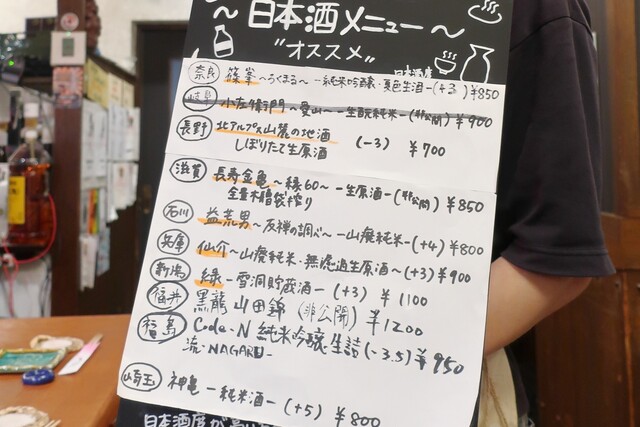 ～日本酒メニュー～
"オススメ"
日本酒度
奈良 篠峯～ろくまる～ー純米吟醸・夏色生酒ー(+3) ¥850
岐阜 小左衛門～愛山～ー生酛純米ー(非公開) ¥900
長野 北アルプス山麓の地酒 (-3) ¥700
しぼりたて生原酒
滋賀 長寿金亀～緑60～ー生原酒ー(非公開) ¥850
全量木槽袋搾り
石川 益荒男～反機の調べ～ー山廃純米ー(+4) ¥800
兵庫 仙介～山廃純米・無濾過生原酒～(+3) ¥900
新潟 緑ー雪洞貯蔵酒ー(+3) ¥1100
福井 黒龍 山田錦 (非公開) ¥1200
福島 Code-N 純米吟醸生詰(-3.5) ¥950
流-NAGARU-
埼玉 神亀ー純米酒ー(+5) ¥800
日本酒度が